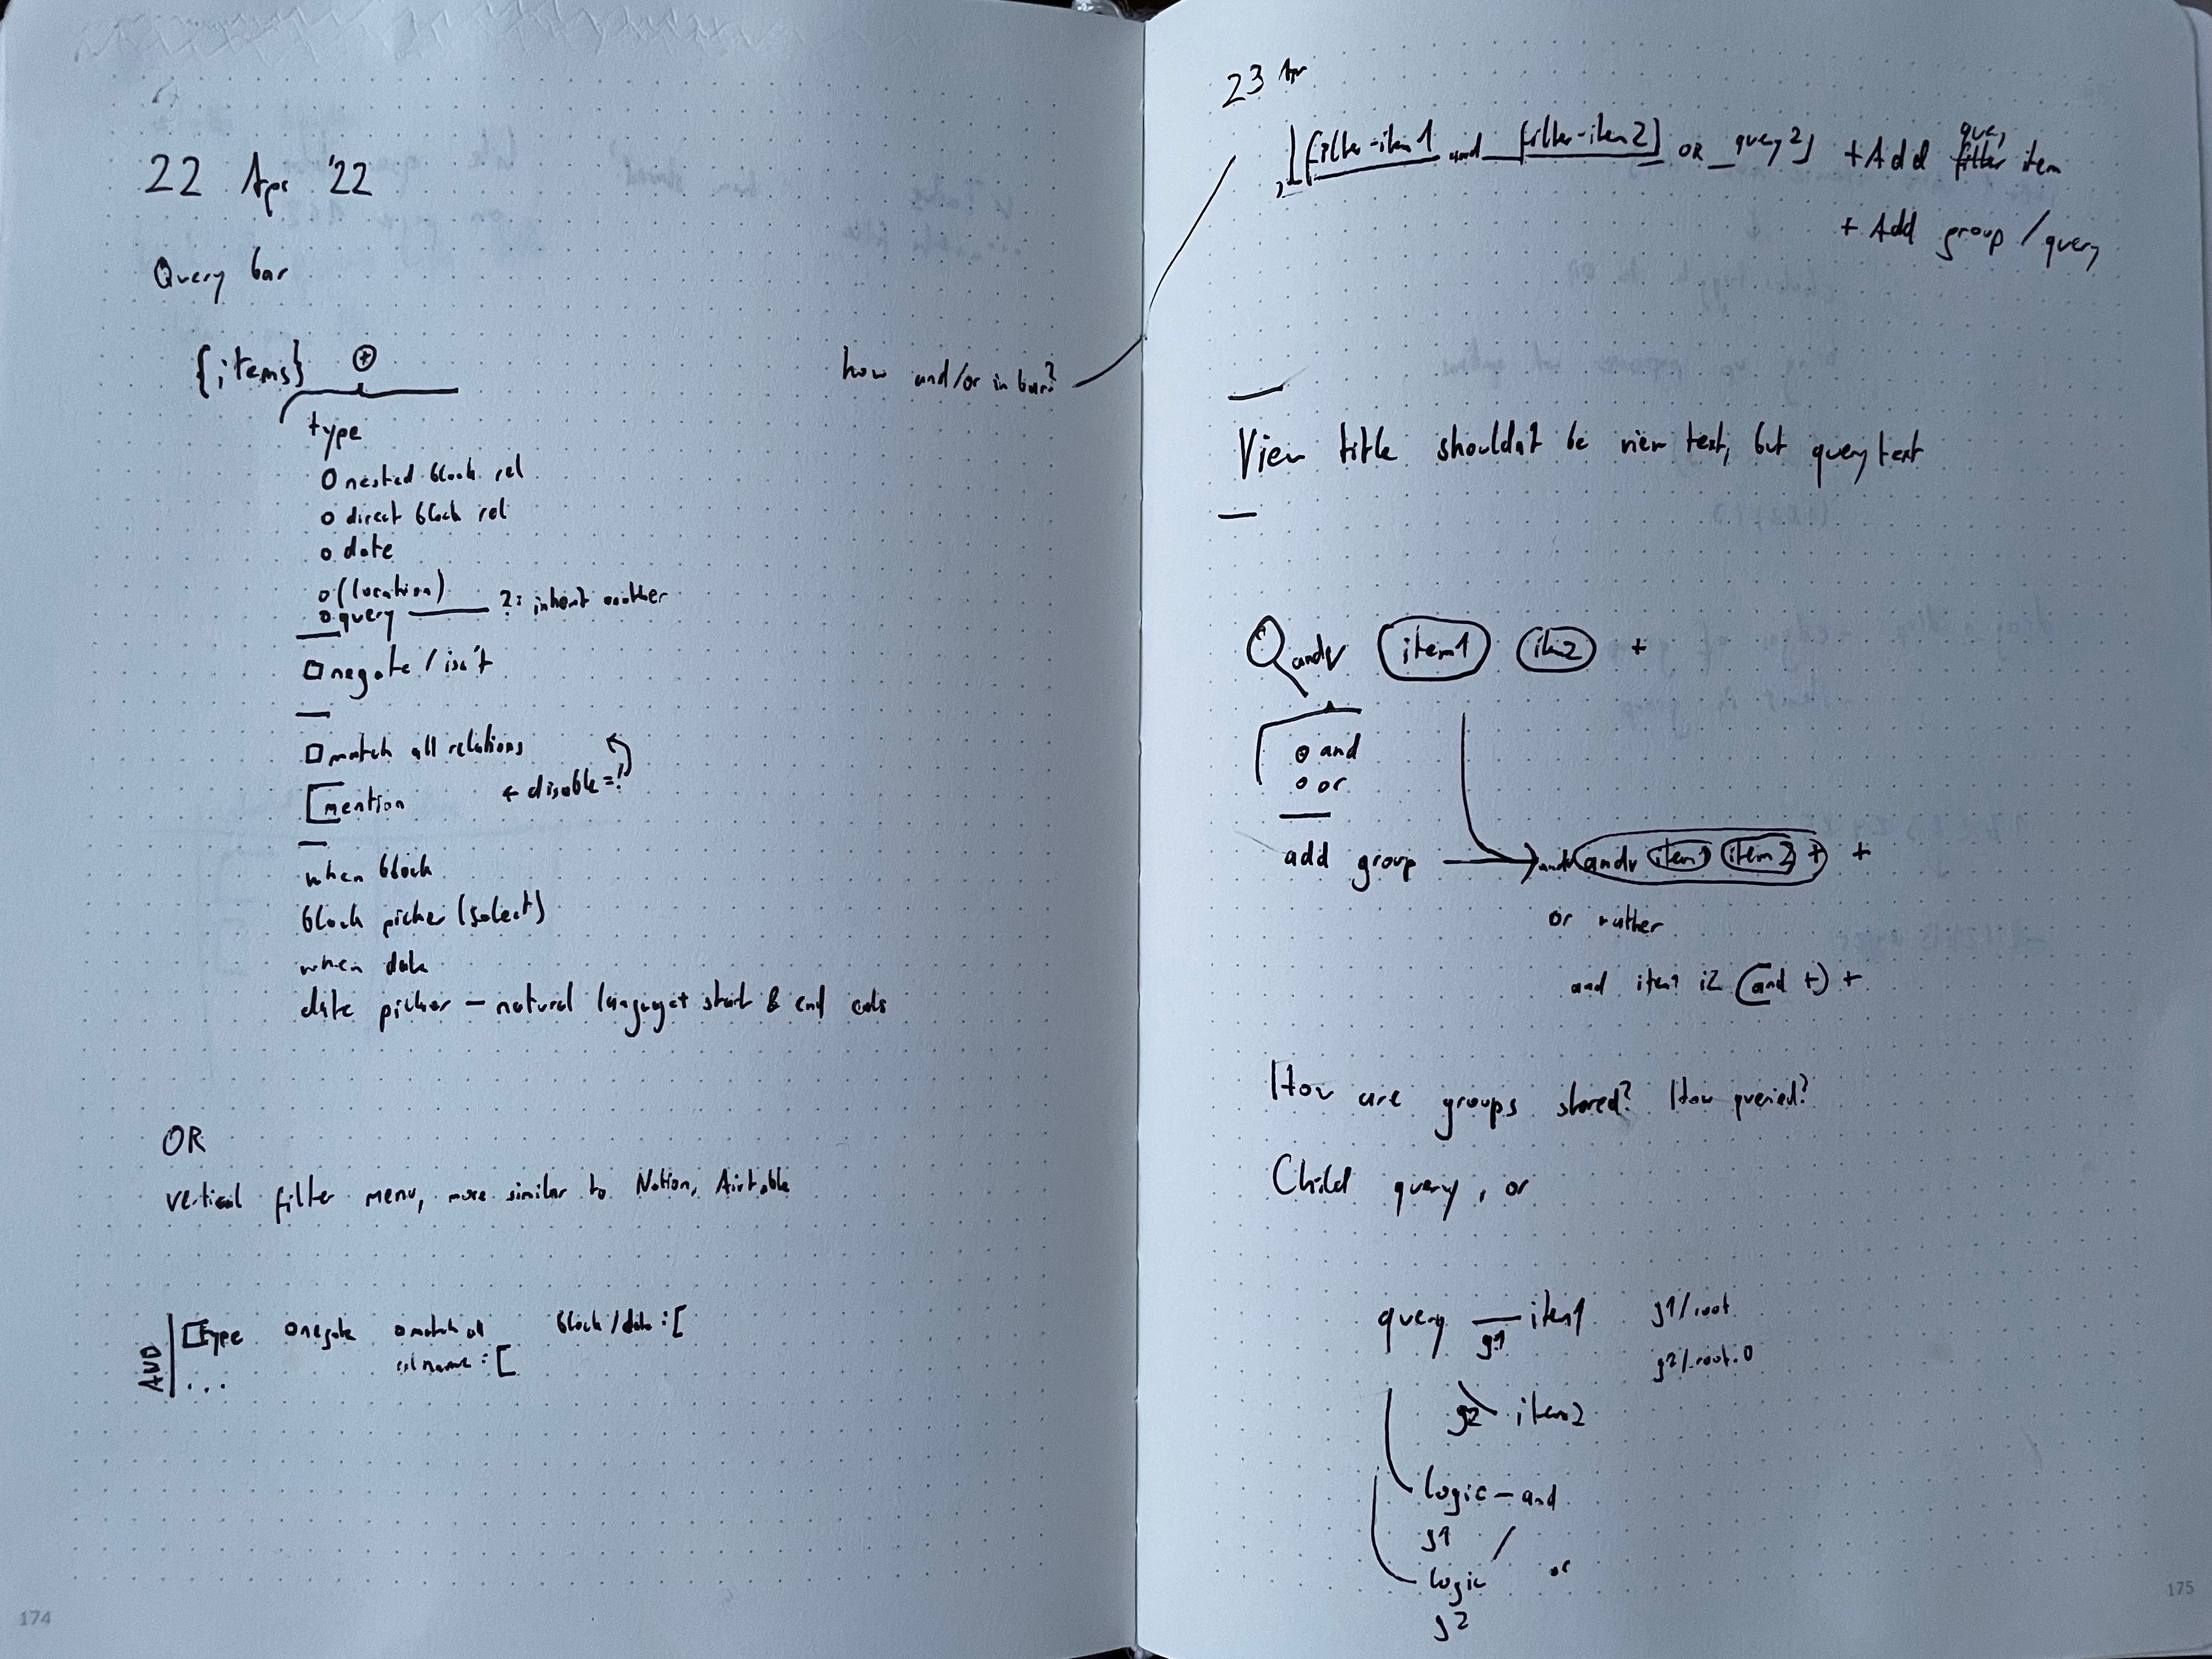 22 Apr '22
Query bar
{items} +
how and/or in bar?
type
o nested block rel
o direct block rel
o date
o (location)
o query — ?: inherit another
negate / isn't
match all relations
[mention ← disable =!
when block
block picker (select)
when date
date picker – natural language + start & end cals
OR
vertical filter menu, more similar to Notion, Airtable
AND
[Type o negate o match all block/date : [
rel name : [
...
174
23 Apr
[filter-item1 and [filter-item2] OR query2] + Add query filter item
+ Add group / query
View title shouldn't be view text, but query text
and item1 item2 +
o and
o or
add group → and and item1 item2 + +
or rather
and item1 i2 (and +) +
How are groups stored? How queried?
Child query, or
query — item1 g1/root
g1
g2/root.0
g2 item2
logic – and
g1
logic / or
g2
175